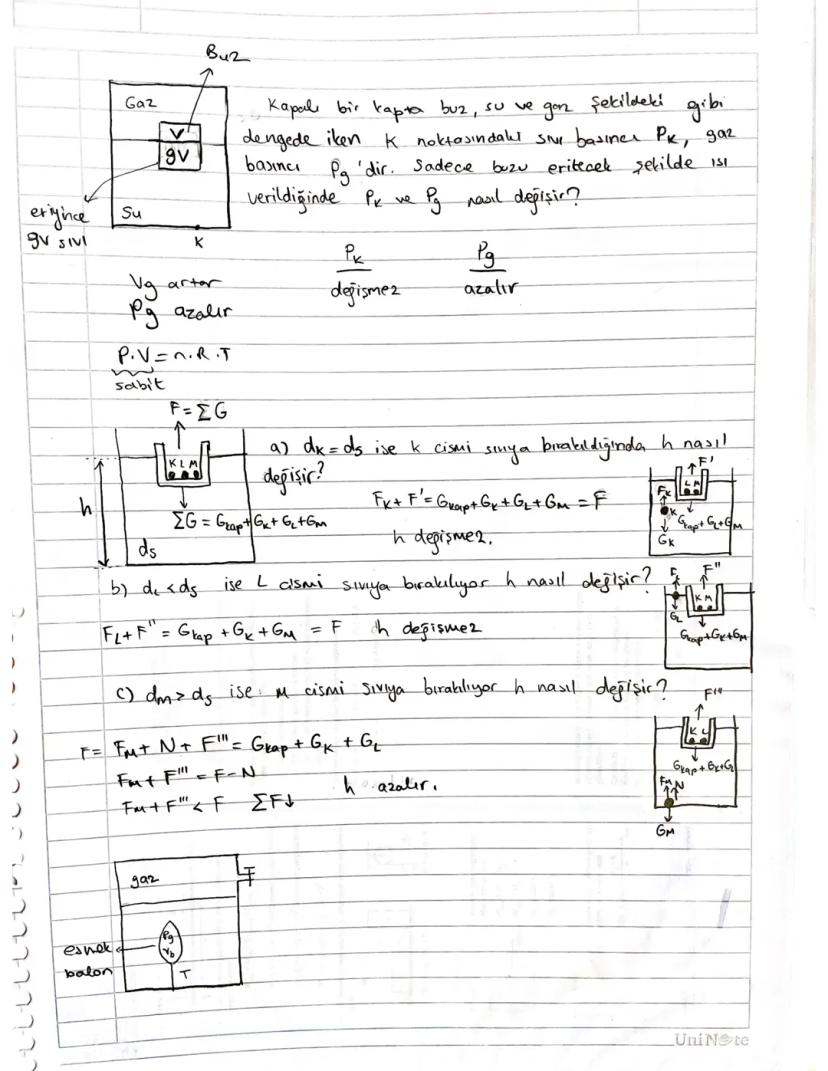 Buz
Gaz
V
9V
eriyince
9V sıvı
Su
K
Kapalı bir kapta buz, su ve gaz şekildeki gibi
dengede iken K noktasındaki sıvı basıncı PK, gaz
basıncı Pg'dir. Sadece buzu eritecek şekilde ısı
verildiğinde PK ve Pg nasıl değişir?
PK Pg
değişmez azalır
Vg artar
Pg azalır
P.V = n.R.T
sabit
F = ΣG
K L M
ΣG = Gkap + GK + GL + GM
h
ds
a) dK = ds ise k cismi sıvıya bırakıldığında h nasıl
değişir?
FK + F' = Gkap + GK + GL + GM = F
h değişmez.
F'
L M
FK
K
Gkap + GL + GM
GK
b) dL < ds ise L cismi sıvıya bırakılıyor h nasıl değişir?
FL + F" = Gkap + GK + GM = F h değişmez
F"
K M
GL
Gkap + GK + GM
c) dM > ds ise M cismi sıvıya bırakılıyor h nasıl değişir?
F = FM + N + F''' = Gkap + GK + GL
FM + F''' = F - N
FM + F''' < F ΣF↓ h azalır.
F'''
K L
Gkap + GK + GL
FM N
GM
gaz
Pg
Vb
esnek
balon
T
UniNote